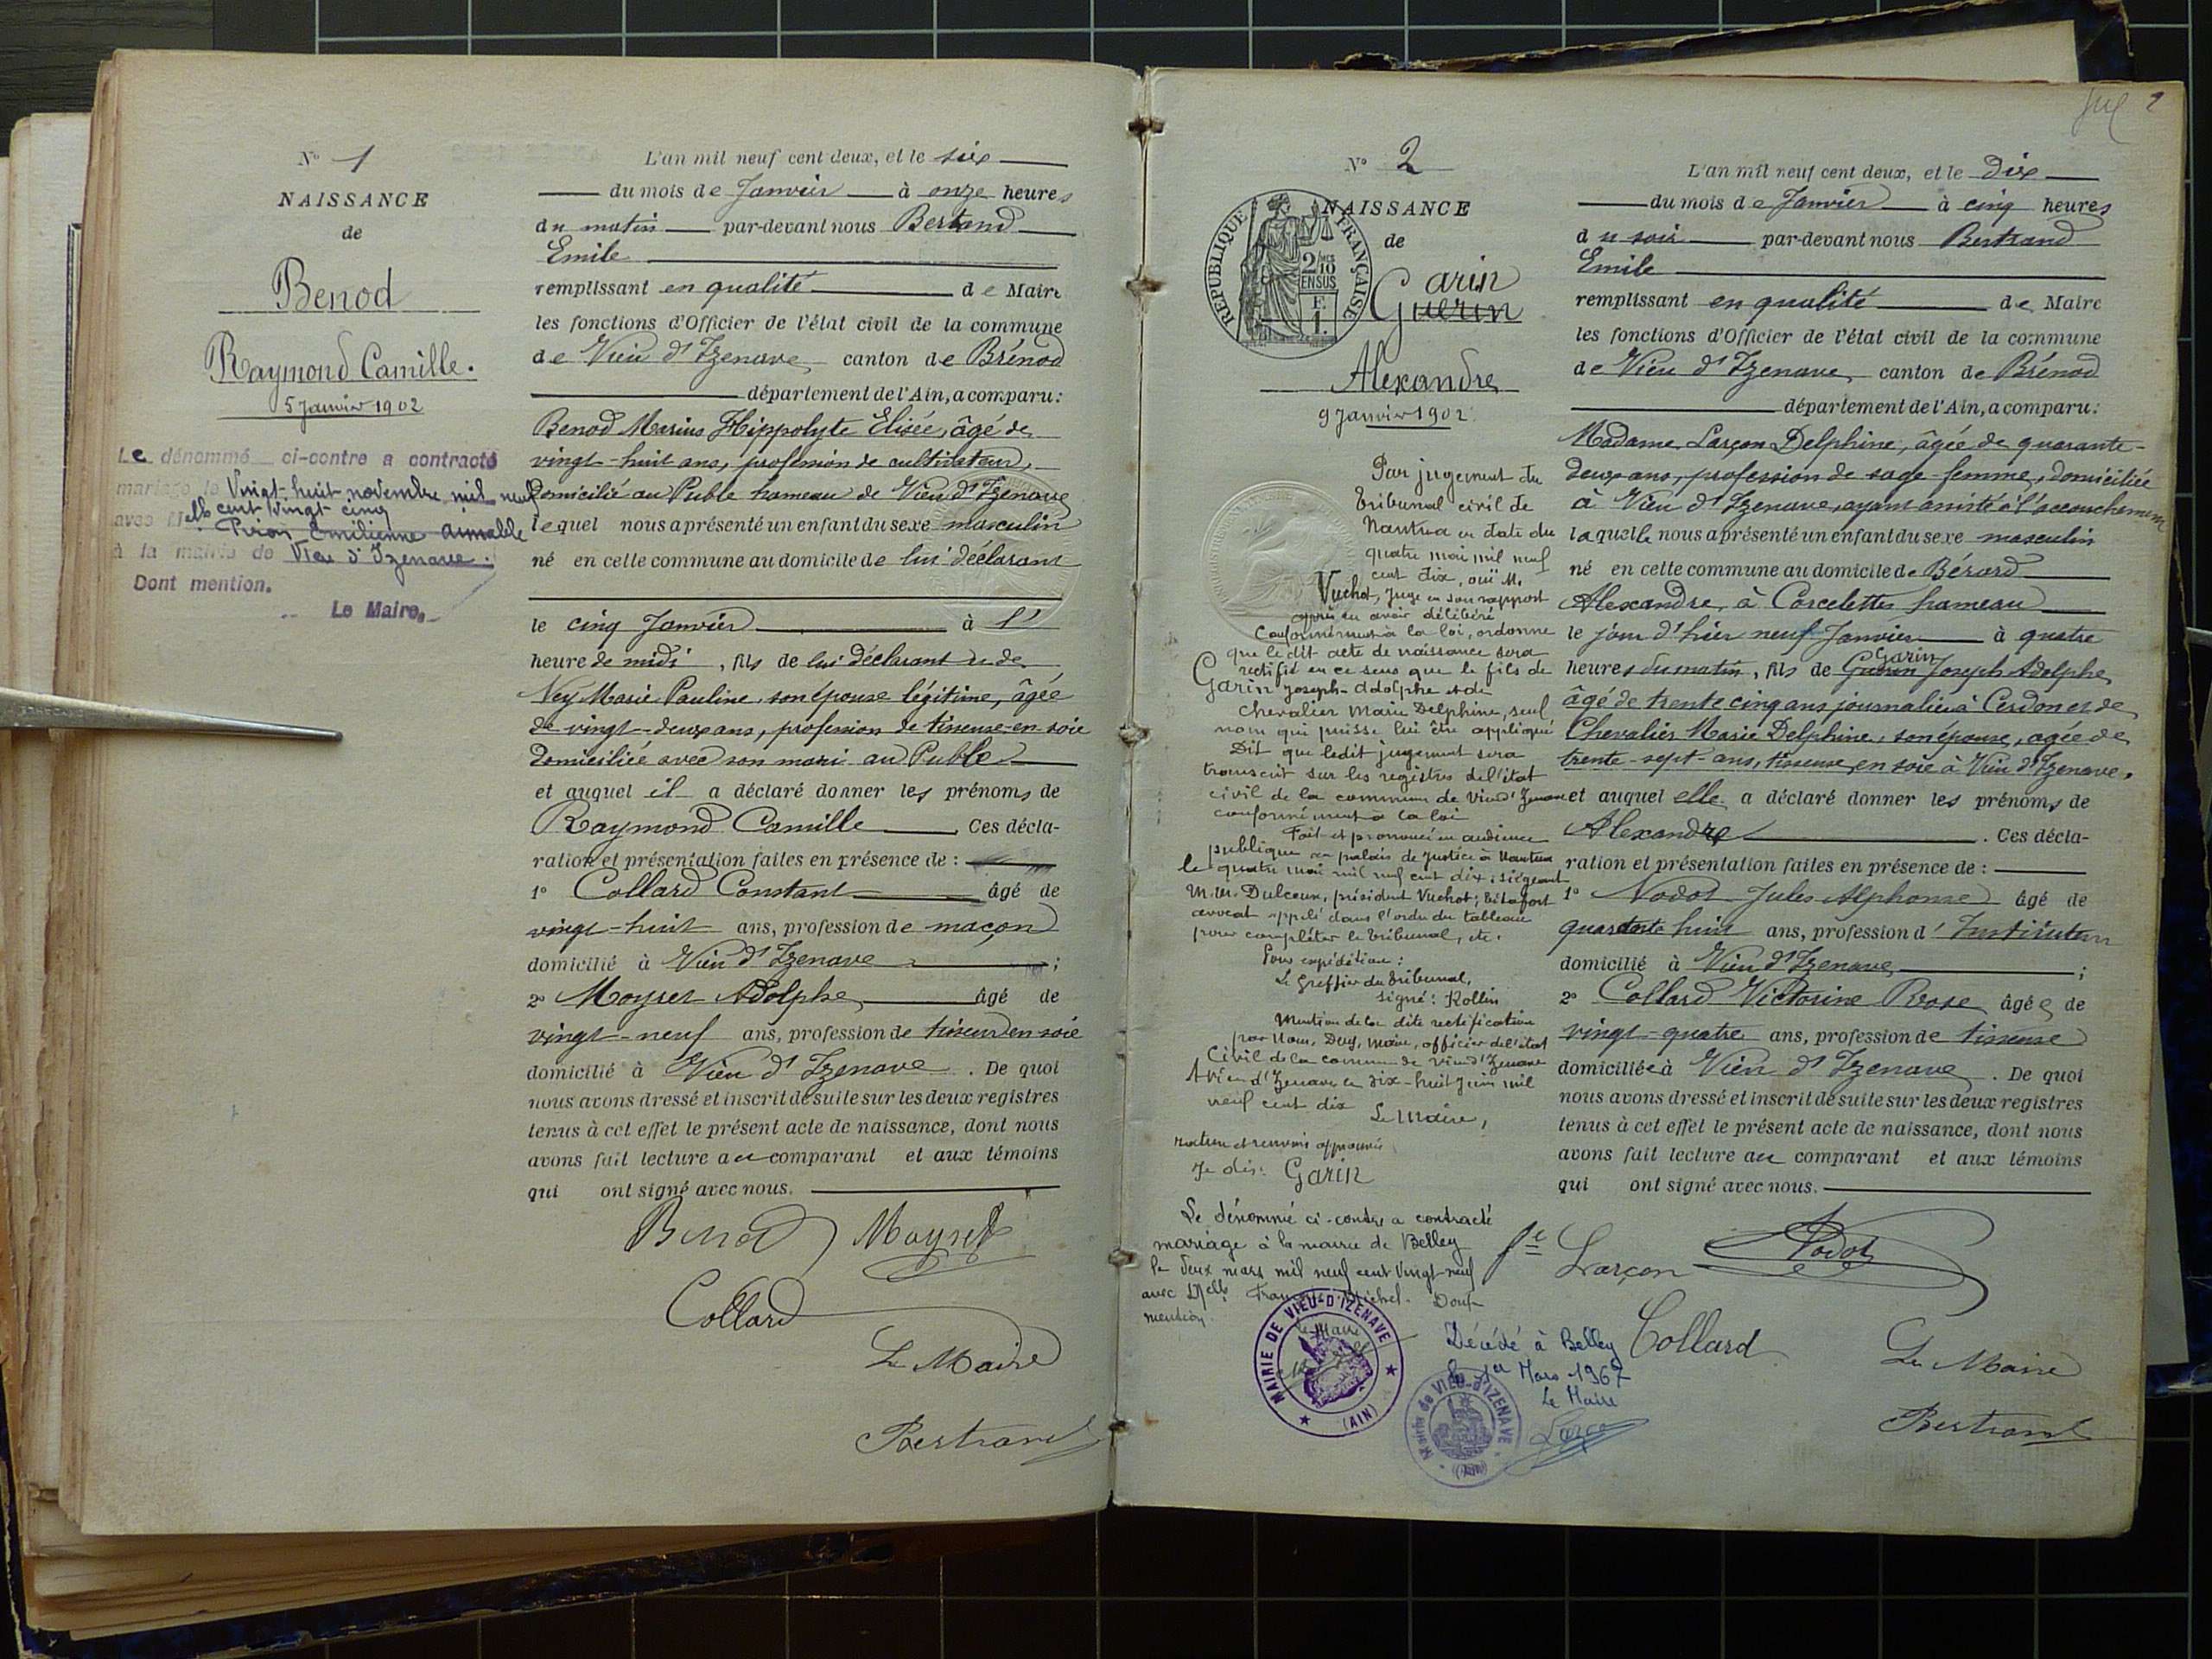 N° 1
NAISSANCE
de
Benod
Raymond Camille.
5 Janvier 1902
Le dénommé ci-contre a contracté
mariage le Vingt-huit novembre mil neuf
cent vingt cinq
avec Melle Emilienne Aimable
à la mairie de Vieu d'Izenave.
Dont mention.
Le Maire,
L'an mil neuf cent deux, et le six
du mois de Janvier à onze heures
du matin par-devant nous Bertrand
Emile
remplissant en qualité de Maire
les fonctions d'Officier de l'état civil de la commune
de Vieu d'Izenave canton de Brénod
département de l'Ain, a comparu:
Benod Marius Hippolyte Elisée, âgé de
vingt-huit ans, profession de cultivateur,
domicilié au Puble hameau de Vieu d'Izenave
lequel nous a présenté un enfant du sexe masculin
né en cette commune au domicile de lui déclarant
le cinq Janvier à l'
heure de midi, fils de lui déclarant et de
Ney Marie Pauline son épouse légitime, âgée
de vingt-deux ans, profession de tisseuse-en-soie
domiciliée avec son mari au Puble
et auquel il a déclaré donner les prénoms de
Raymond Camille. Ces décla-
ration et présentation faites en présence de :
1° Collard Constant âgé de
vingt-huit ans, profession de maçon
domicilié à Vieu d'Izenave ;
2° Moyret Adolphe âgé de
vingt-neuf ans, profession de tisseur en soie
domicilié à Vieu d'Izenave. De quoi
nous avons dressé et inscrit de suite sur les deux registres
tenus à cet effet le présent acte de naissance, dont nous
avons fait lecture au comparant et aux témoins
qui ont signé avec nous.
Benod Moyret
Collard
Le Maire
Bertrand
2
N° 2
NAISSANCE
de
Garin
Guerin
Alexandre
9 Janvier 1902
REPUBLIQUE FRANÇAISE
2/10 EN SUS
F.
1.
Par jugement du
tribunal civil de
Nantua en date du
quatre mai mil neuf
cent dix, ouï M.
Vuchot, juge en son rapport
après en avoir délibéré
Conformément à la loi, ordonne
que le dit acte de naissance sera
rectifié en ce sens que le fils de
Garin Joseph-Adolphe et de
Chevalier Marie Delphine, seul
nom qui puisse lui être appliqué
Dit que ledit jugement sera
transcrit sur les registres de l'état
civil de la commune de Vieu d'Izenave
conformément à la loi
Fait et prononcé en audience
publique au palais de Justice à Nantua
le quatre mai mil neuf cent dix : siégeant
M.M. président Vuchot;
avocat appelé dans l'ordre du tableau
pour compléter le tribunal, etc.
Pour expédition :
Le Greffier du tribunal,
signé : Rollin
Mention de la dite rectification
par Nous, maire, officier de l'état
Civil de la commune de Vieu d'Izenave
A Vieu d'Izenave le dix-huit Juin mil
neuf cent dix
Le Maire,
rature et renvois approuvés
Je dis: Garin
Le dénommé ci-contre a contracté
mariage à la mairie de Belley
le deux mars mil neuf cent vingt-neuf
avec Melle Michel. Dont
mention.
Le Maire
MAIRIE DE VIEU-D'IZENAVE
(AIN)
Décédé à Belley
le 1er Mars 1967
Le Maire
Mairie de VIEU-D'IZENAVE
(Ain)
L'an mil neuf cent deux, et le Dix
du mois de Janvier à cinq heures
du soir par-devant nous Bertrand
Emile
remplissant en qualité de Maire
les fonctions d'Officier de l'état civil de la commune
de Vieu d'Izenave canton de Brénod
département de l'Ain, a comparu:
Madame Larçon Delphine, âgée de quarante-
deux ans, profession de sage-femme, domiciliée
à Vieu d'Izenave, ayant assisté à l'accouchement
laquelle nous a présenté un enfant du sexe masculin
né en cette commune au domicile de Bérard
Alexandre, à Corcelettes hameau
le jour d'hier neuf Janvier à quatre
Garin
heures du matin, fils de Guerin Joseph Adolphe
âgé de trente cinq ans journalier à Cerdon et de
Chevalier Marie Delphine, son épouse, agée de
trente-sept-ans, tisseuse, en soie à Vieu d'Izenave,
et auquel elle a déclaré donner les prénoms de
Alexandre. Ces décla-
ration et présentation faites en présence de :
1° Nodot Jules Alphonse âgé de
quarante huit ans, profession d'Instituteur
domicilié à Vieu d'Izenave ;
2° Collard Victorine Rose âgée de
vingt-quatre ans, profession de tisseuse
domiciliée à Vieu d'Izenave. De quoi
nous avons dressé et inscrit de suite sur les deux registres
tenus à cet effet le présent acte de naissance, dont nous
avons fait lecture au comparant et aux témoins
qui ont signé avec nous.
fe Larçon Nodot
Collard
Le Maire
Bertrand